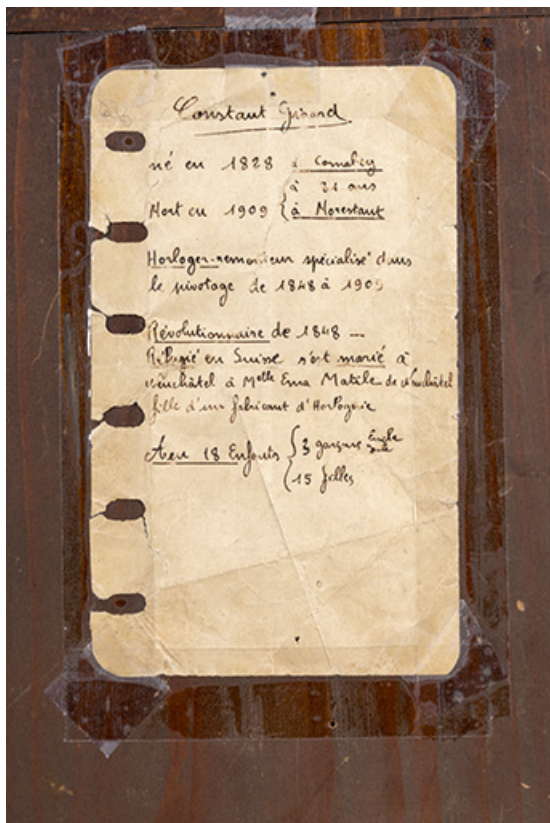 Constant Girard
né en 1828 à
à 31 ans
Mort en 1909 { à Morestaut
Horloger-remonteur spécialisé dans
le pivotage de 1848 à 1909
Révolutionnaire de 1848 —
Réfugié en Suisse s'est marié à
Neuchâtel à Melle Ema Matile de Neuchâtel
fille d'un fabricant d'Horlogerie
A eu 18 Enfants { 3 garçons
15 filles